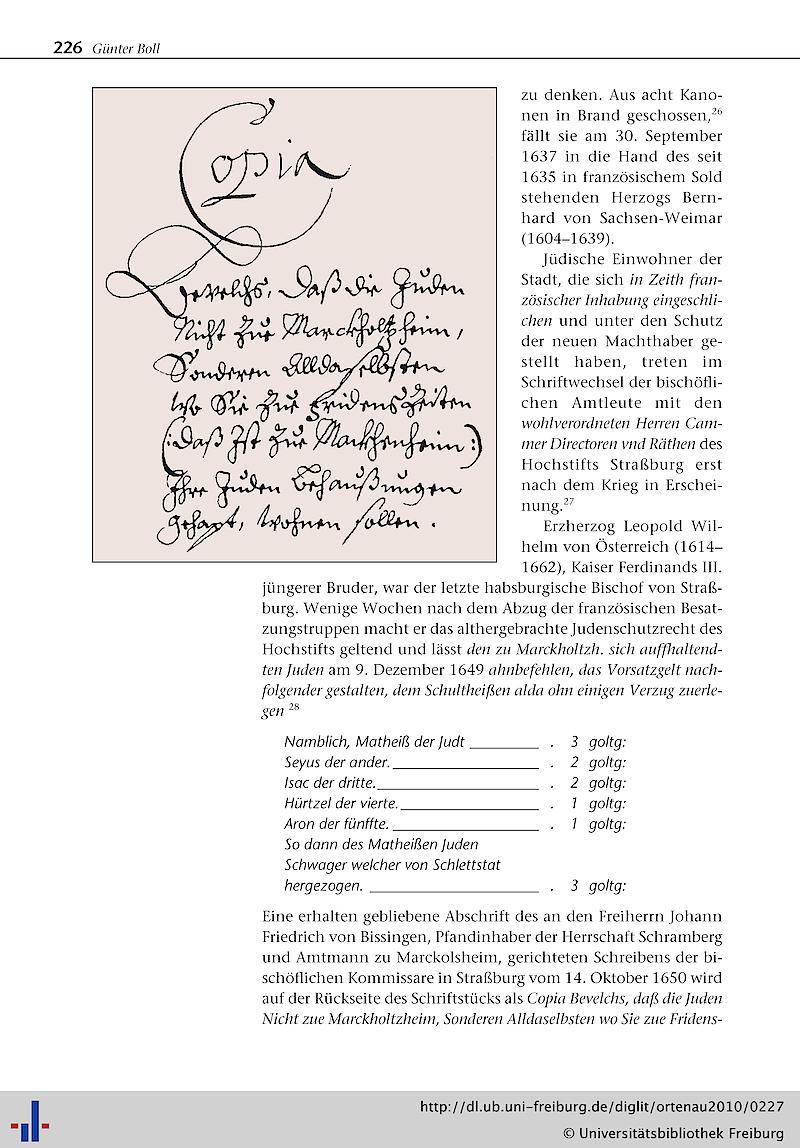 226 Günter Boll
Copia
Bevelchs, Daß die Juden
Nicht zue Marckholtzheim,
Sonderen Alldaselbsten
wo Sie zue Fridens Zeiten
(: Daß Ist zue Mackhenheim :)
Ihre Juden Behaußungen
gehapt, wohnen sollen.
zu denken. Aus acht Kano-
nen in Brand geschossen,26
fällt sie am 30. September
1637 in die Hand des seit
1635 in französischem Sold
stehenden Herzogs Bern-
hard von Sachsen-Weimar
(1604–1639).
Jüdische Einwohner der
Stadt, die sich in Zeith fran-
zösischer Inhabung eingeschli-
chen und unter den Schutz
der neuen Machthaber ge-
stellt haben, treten im
Schriftwechsel der bischöfli-
chen Amtleute mit den
wohlverordneten Herren Cam-
mer Directoren vnd Räthen des
Hochstifts Straßburg erst
nach dem Krieg in Erschei-
nung.27
Erzherzog Leopold Wil-
helm von Österreich (1614–
1662), Kaiser Ferdinands III.
jüngerer Bruder, war der letzte habsburgische Bischof von Straß-
burg. Wenige Wochen nach dem Abzug der französischen Besat-
zungstruppen macht er das althergebrachte Judenschutzrecht des
Hochstifts geltend und lässt den zu Marckholtzh. sich auffhaltend-
ten Juden am 9. Dezember 1649 ahnbefehlen, das Vorsatzgelt nach-
folgender gestalten, dem Schultheißen alda ohn einigen Verzug zuerle-
gen 28
Namblich, Matheiß der Judt ________ . 3 goltg:
Seyus der ander. ________ . 2 goltg:
Isac der dritte. ________ . 2 goltg:
Hürtzel der vierte. ________ . 1 goltg:
Aron der fünffte. ________ . 1 goltg:
So dann des Matheißen Juden
Schwager welcher von Schlettstat
hergezogen. ________ . 3 goltg:
Eine erhalten gebliebene Abschrift des an den Freiherrn Johann
Friedrich von Bissingen, Pfandinhaber der Herrschaft Schramberg
und Amtmann zu Marckolsheim, gerichteten Schreibens der bi-
schöflichen Kommissare in Straßburg vom 14. Oktober 1650 wird
auf der Rückseite des Schriftstücks als Copia Bevelchs, daß die Juden
Nicht zue Marckholtzheim, Sonderen Alldaselbsten wo Sie zue Fridens-
http://dl.ub.uni-freiburg.de/diglit/ortenau2010/0227
© Universitätsbibliothek Freiburg